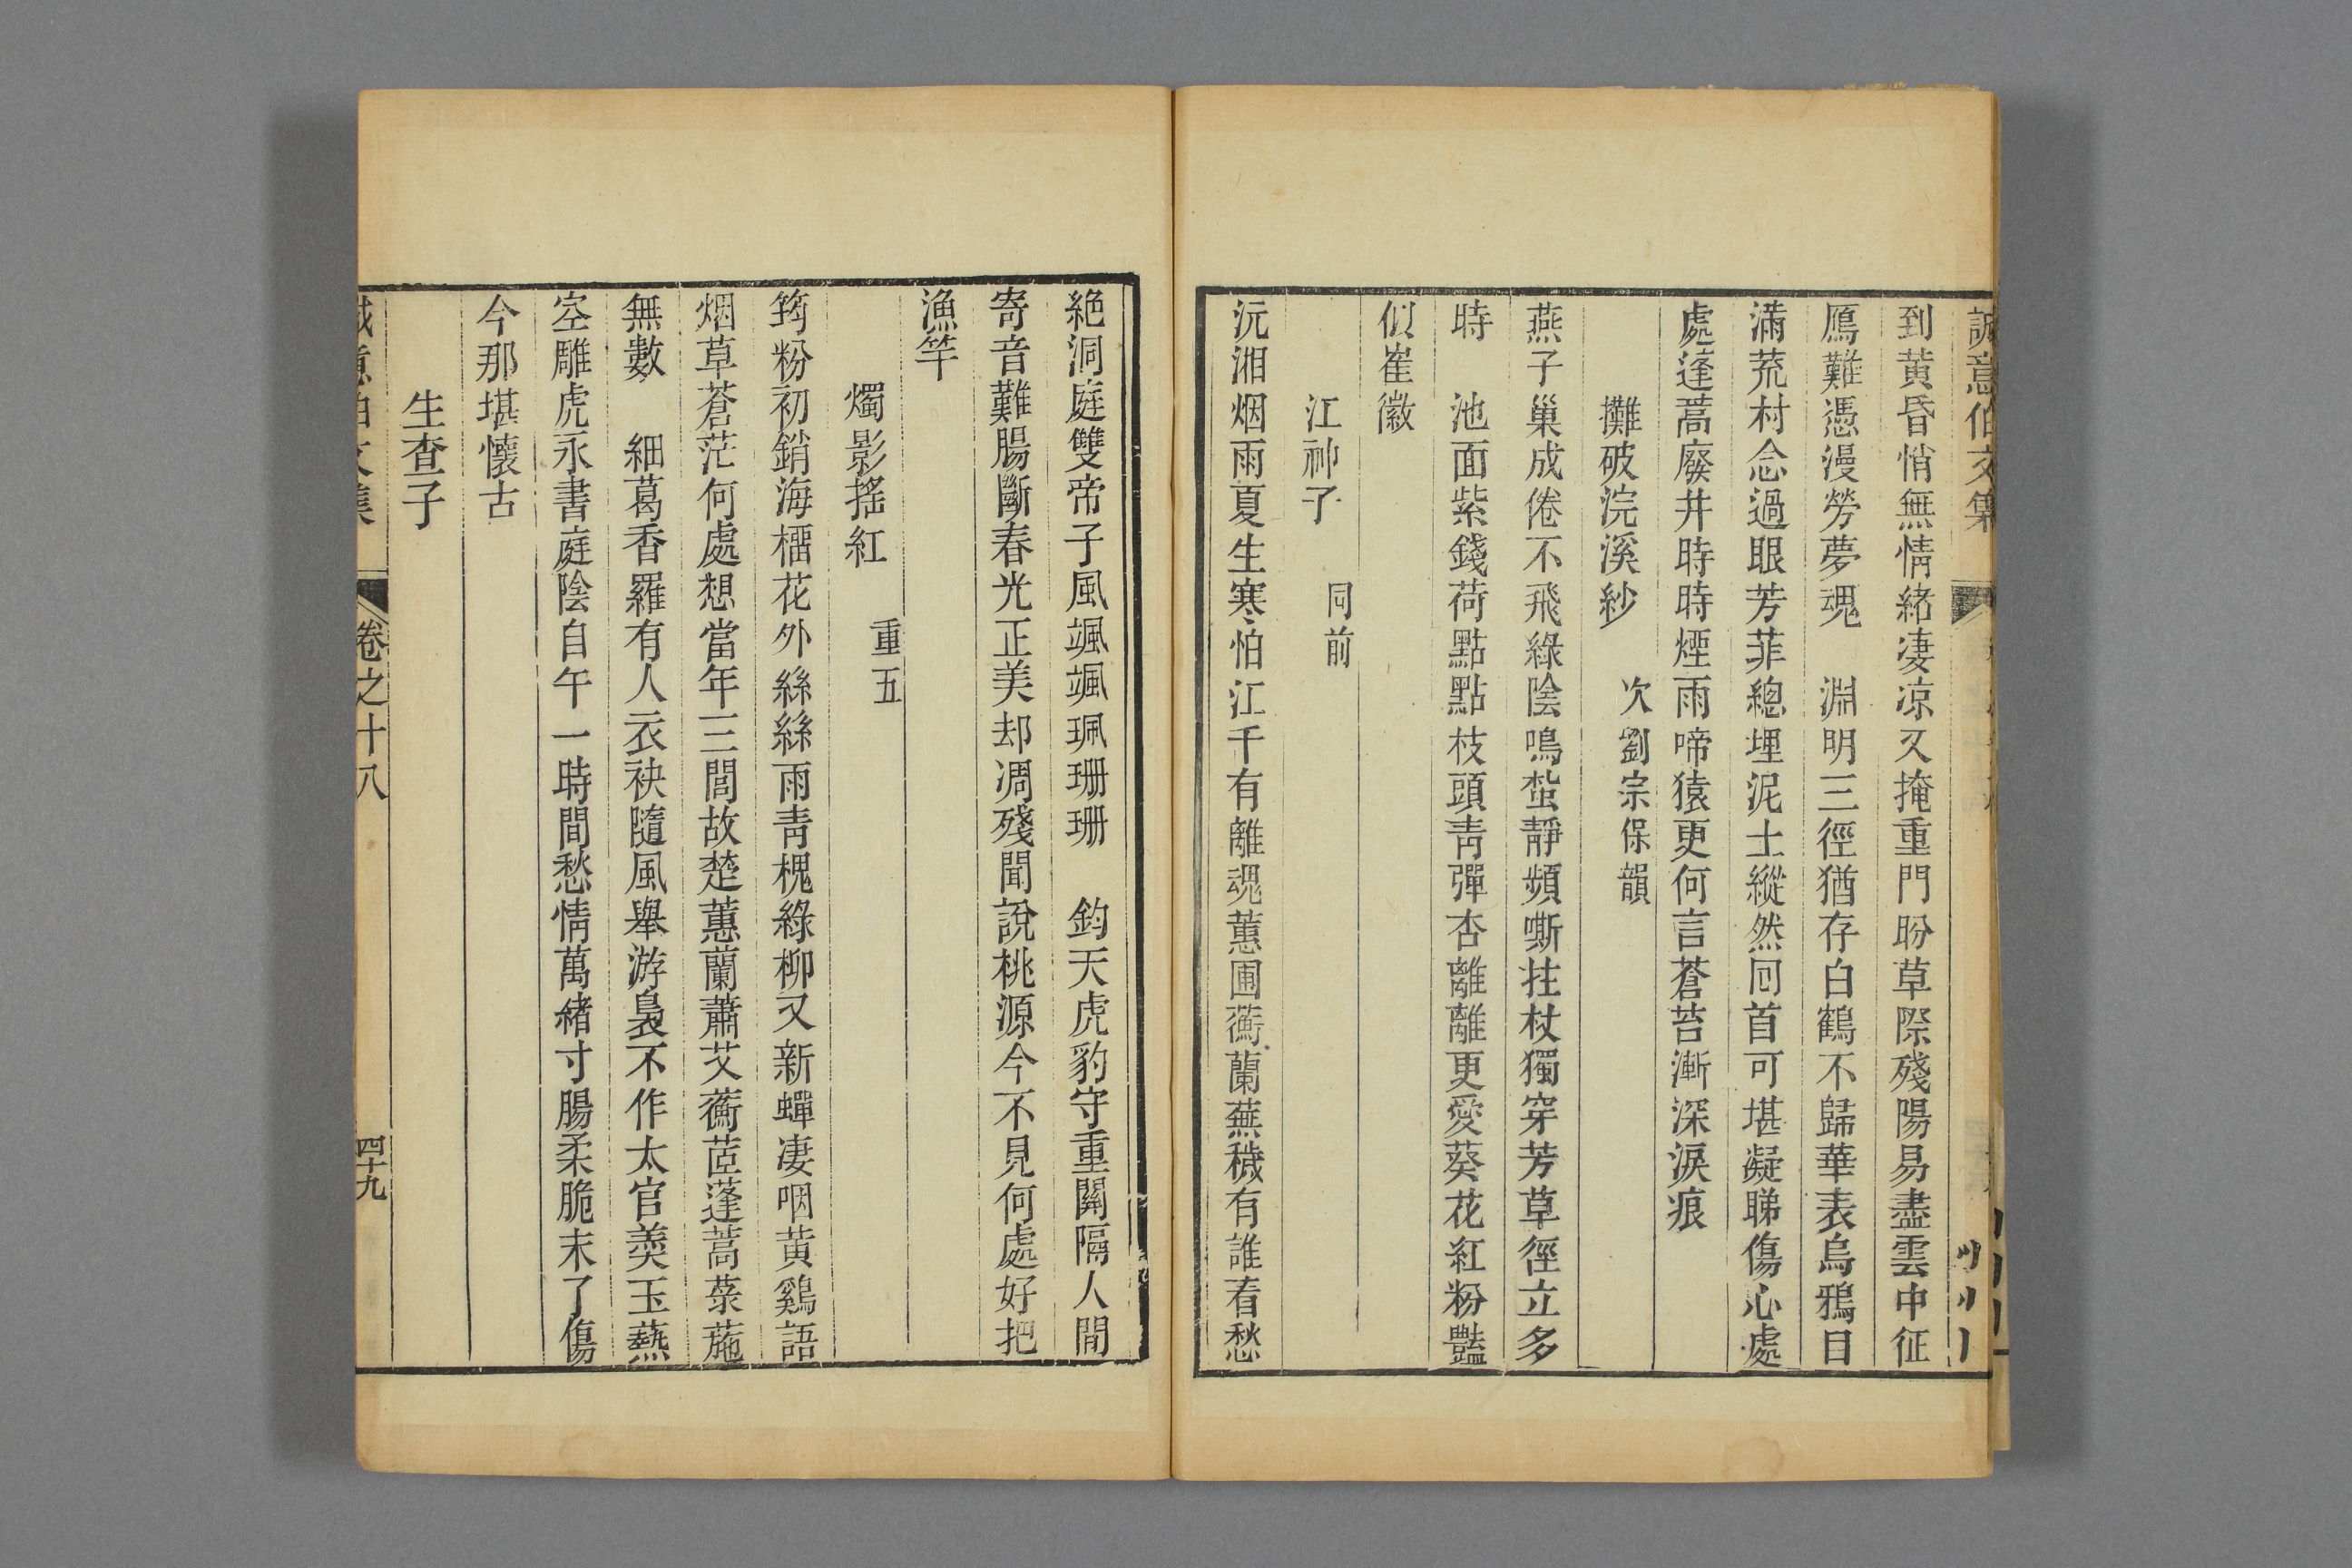 誠意伯文集
到黄昏悄無情緒淒凉又掩重門盼草際殘陽易盡雲中征
鴈難憑漫勞夢魂　淵明三徑猶存白鶴不歸華表烏鴉目
滿荒村念過眼芳菲總埋泥土縱然回首可堪凝睇傷心處
處蓬蒿廢井時時煙雨啼猿更何言蒼苔漸深淚痕
攤破浣溪紗　次劉宗保韻
燕子巢成倦不飛綠陰鳴蜇靜頻嘶拄杖獨穿芳草徑立多
時　池面紫錢荷點點枝頭青彈杏離離更愛葵花紅粉豔
似崔徽
江神子　同前
沅湘烟雨夏生寒怕江干有離魂蕙圃蘅蘭蕪穢有誰看愁
絶洞庭雙帝子風颯颯珮珊珊　鈞天虎豹守重關隔人間
寄音難腸斷春光正美却凋殘聞說桃源今不見何處好把
漁竿
燭影搖紅　重五
筠粉初銷海橊花外絲絲雨青槐綠柳又新蟬凄咽黄鷄語
烟草蒼茫何處想當年三閭故楚蕙蘭蕭艾蘅茝蓬蒿菉葹
無數　細葛香羅有人衣袂隨風舉游裊不作太官羮玉爇
空雕虎永書庭陰自午一時間愁情萬緒寸腸柔脆未了傷
今那堪懷古
生查子
誠意伯文集　卷之十八　四十九